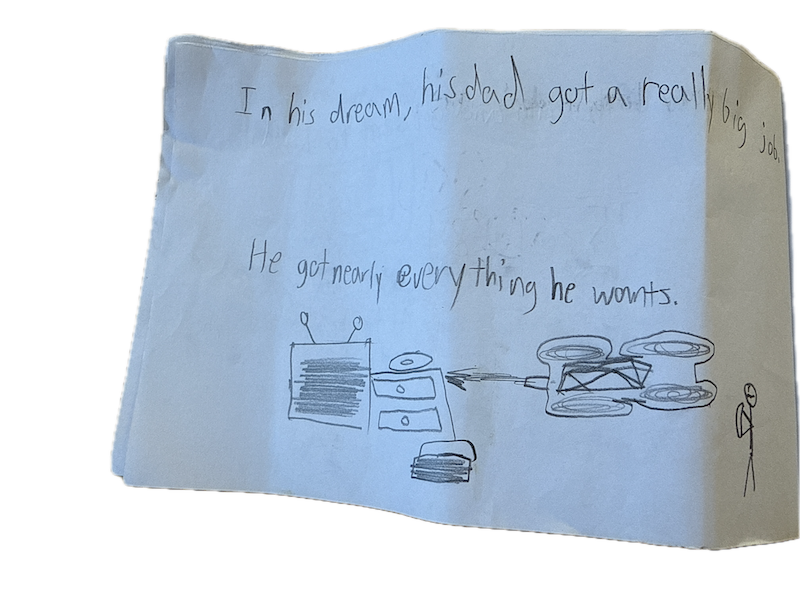 In his dream, his dad got a really big job.
He got nearly everything he wants.